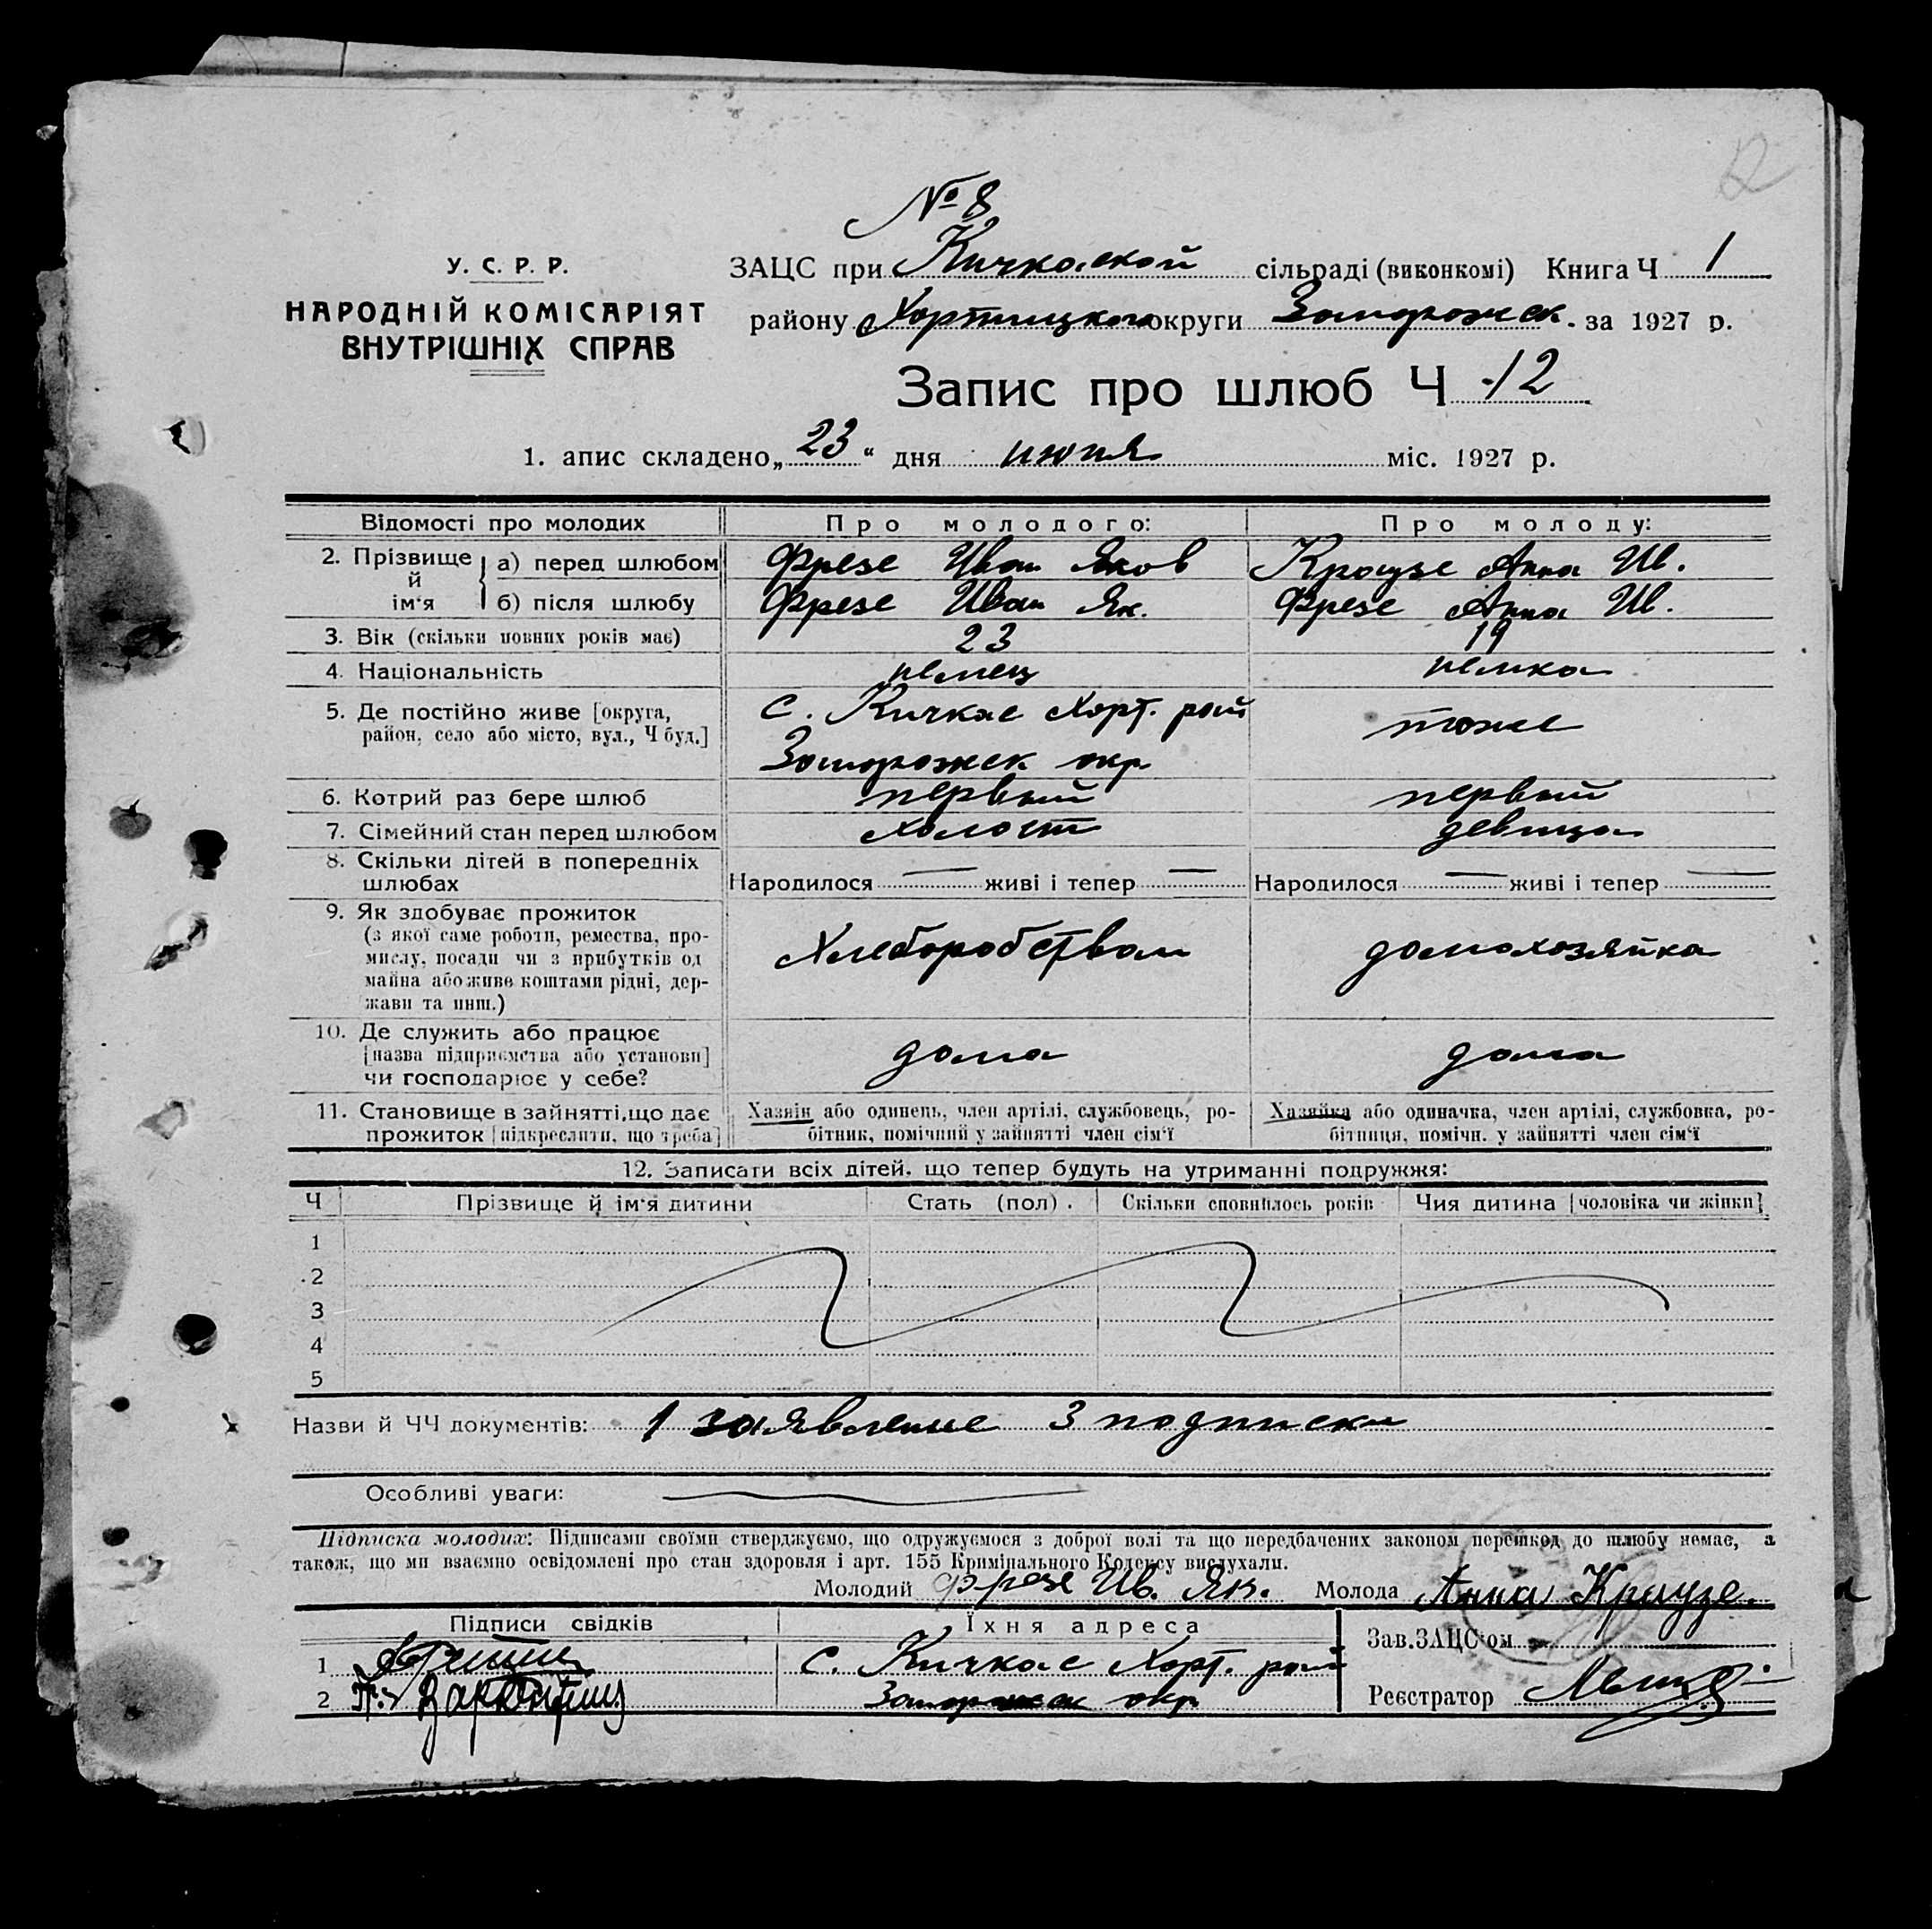 № 8
У. С. Р. Р.
НАРОДНІЙ КОМІСАРІЯТ
ВНУТРІШНІХ СПРАВ
ЗАЦС при Кичкаской сільраді (виконкомі) Книга Ч 1
району Хортицкого округи Запорожск. за 1927 р.
Запис про шлюб Ч 12
1. апис складено „23“ дня июня міс. 1927 р.
Відомості про молодих Про молодого: Про молоду:
2. Прізвище й ім'я а) перед шлюбом Фрезе Иван Яков Краузе Анна Ив.
б) після шлюбу Фрезе Иван Як. Фрезе Анна Ив.
3. Вік (скільки повних років має) 23 19
4. Національність немец немка
5. Де постійно живе [округа, район, село або місто, вул., Ч буд.] с. Кичкас Хорт. рай тоже
Запорожск окр.
6. Котрий раз бере шлюб первый первый
7. Сімейний стан перед шлюбом холост девица
8. Скільки дітей в попередніх
шлюбах Народилося — живі і тепер — Народилося — живі і тепер —
9. Як здобуває прожиток
(з якої саме роботи, ремества, про-
мислу, посади чи з прибутків од Хлеборобством домохозяйка
майна або живе коштами рідні, дер-
жави та инш.)
10. Де служить або працює
[назва підприємства або установи] дома дома
чи господарює у себе?
11. Становище в зайнятті, що дає Хазяін або одинець, член артілі, службовець, ро- Хазяйка або одиначка, член артілі, службовка, ро-
прожиток [підкреслити, що треба] бітник, помічний у зайнятті член сім'ї бітниця, помічн. у зайнятті член сім'ї
12. Записати всіх дітей. що тепер будуть на утриманні подружжя:
Ч Прізвище й ім'я дитини Стать (пол). Скільки сповнилось років Чия дитина [чоловіка чи жінки]
1
2
3
4
5
Назви й ЧЧ документів: 1 заявление 3 подписки
Особливі уваги: —
Підписка молодих: Підписами своїми стверджуємо, що одружуємося з доброї волі та що передбачених законом перешкод до шлюбу немає, а
також, що ми взаємно освідомлені про стан здоровля і арт. 155 Кримінального Кодексу вислухали.
Молодий Фрезе Ив. Як. Молода Анна Краузе.
Підписи свідків Їхня адреса Зав. ЗАЦС'ом
1 с. Кичкас Хорт. рай
2 Запорожск окр Реєстратор